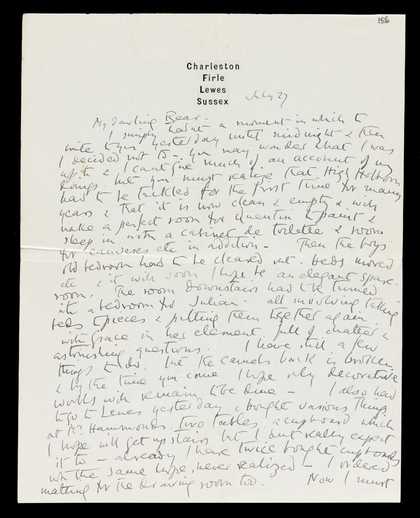 156
Charleston
Firle
Lewes
Sussex
July 27
My darling Bear.
I simply hadn't a moment in which to
write to you yesterday until midnight & then
I decided not to - you may wonder what I was
up to & I can't give much of an account of my
doings but you must realize that High Holborn
had to be tackled for the first time for many
years & that it is now clean & empty & will
make a perfect room for Quentin to paint &
sleep in with a cabinet de toilette & room
for canvases etc in addition - Then the boys
old bedroom had to be cleared out. beds moved
etc & it will soon I hope be an elegant spare
room. The room downstairs had to be turned
into a bedroom for Julian - all involving taking
beds to pieces & putting them together again
with Grace in her element full of chatter &
astonishing questions. I have still a few
things to do. but the camels back is broken
& by the time you come I hope only decorative
works will remain to be done - I also had
to go to Lewes yesterday & bought various things
at Mr Hammonds. two tables, a cupboard which
I hope will get upstairs but I don't really expect
it to - already I have twice bought cupboards
with the same hope, never realized - I ordered
matting for the drawing room too. Now I must